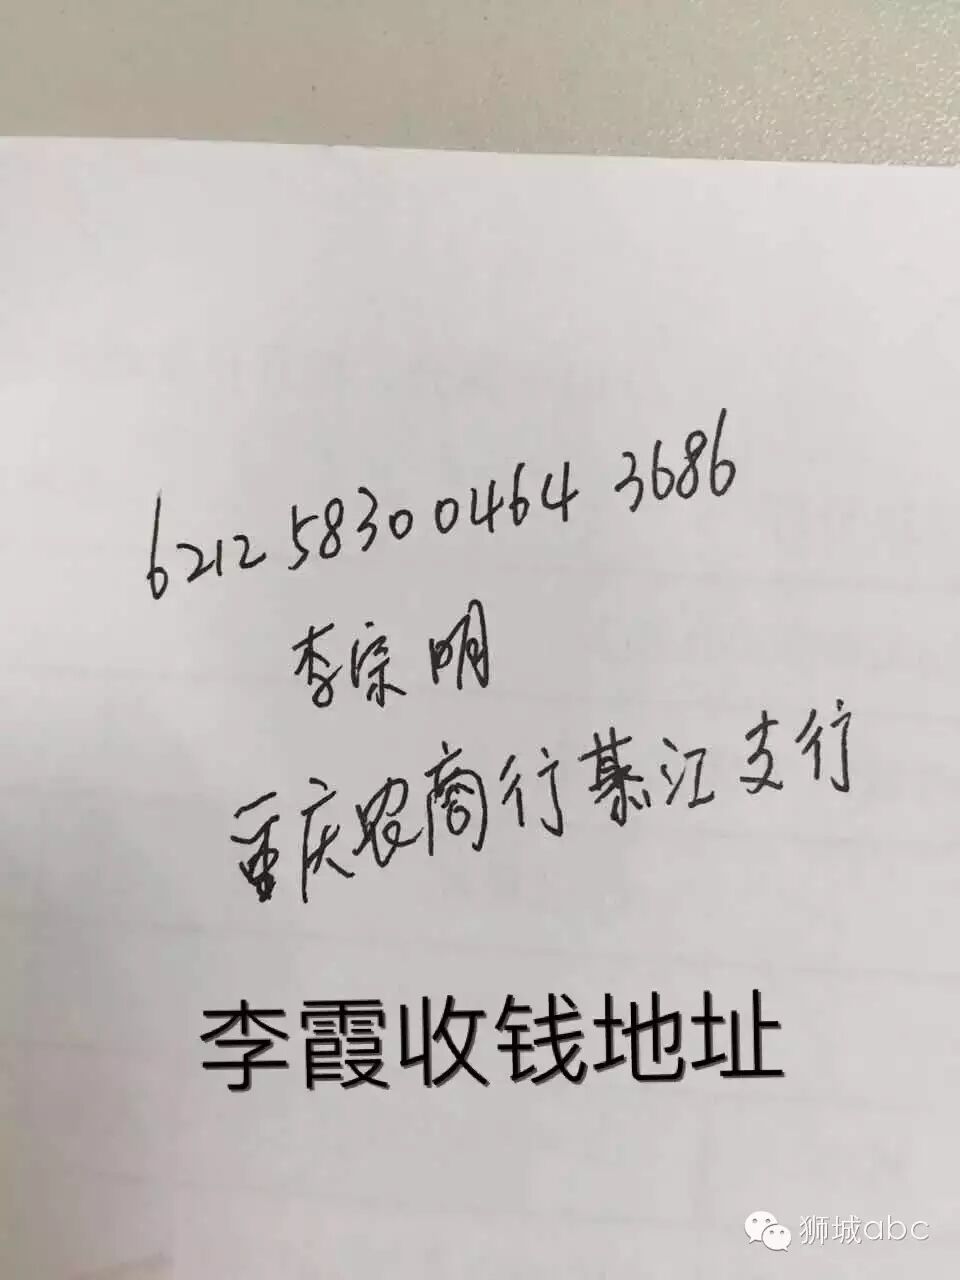 6212 5830 0464 3686
李宗明
重庆农商行綦江支行
李霞收钱地址
狮城abc